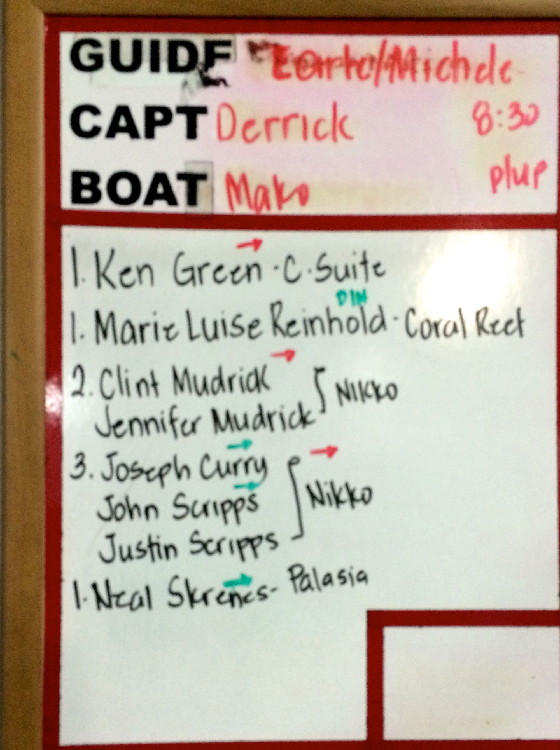 GUIDE Earle/Michele
CAPT Derrick 8:30
BOAT Mako plup
1. Ken Green → · C. Suite
DIN
1. Marie Luise Reinhold · Coral Reef
2. Clint Mudrick →
Jennifer Mudrick ] Nikko
3. Joseph Curry →
John Scripps ] Nikko
Justin Scripps
1. Neal Skrenes - Palasia